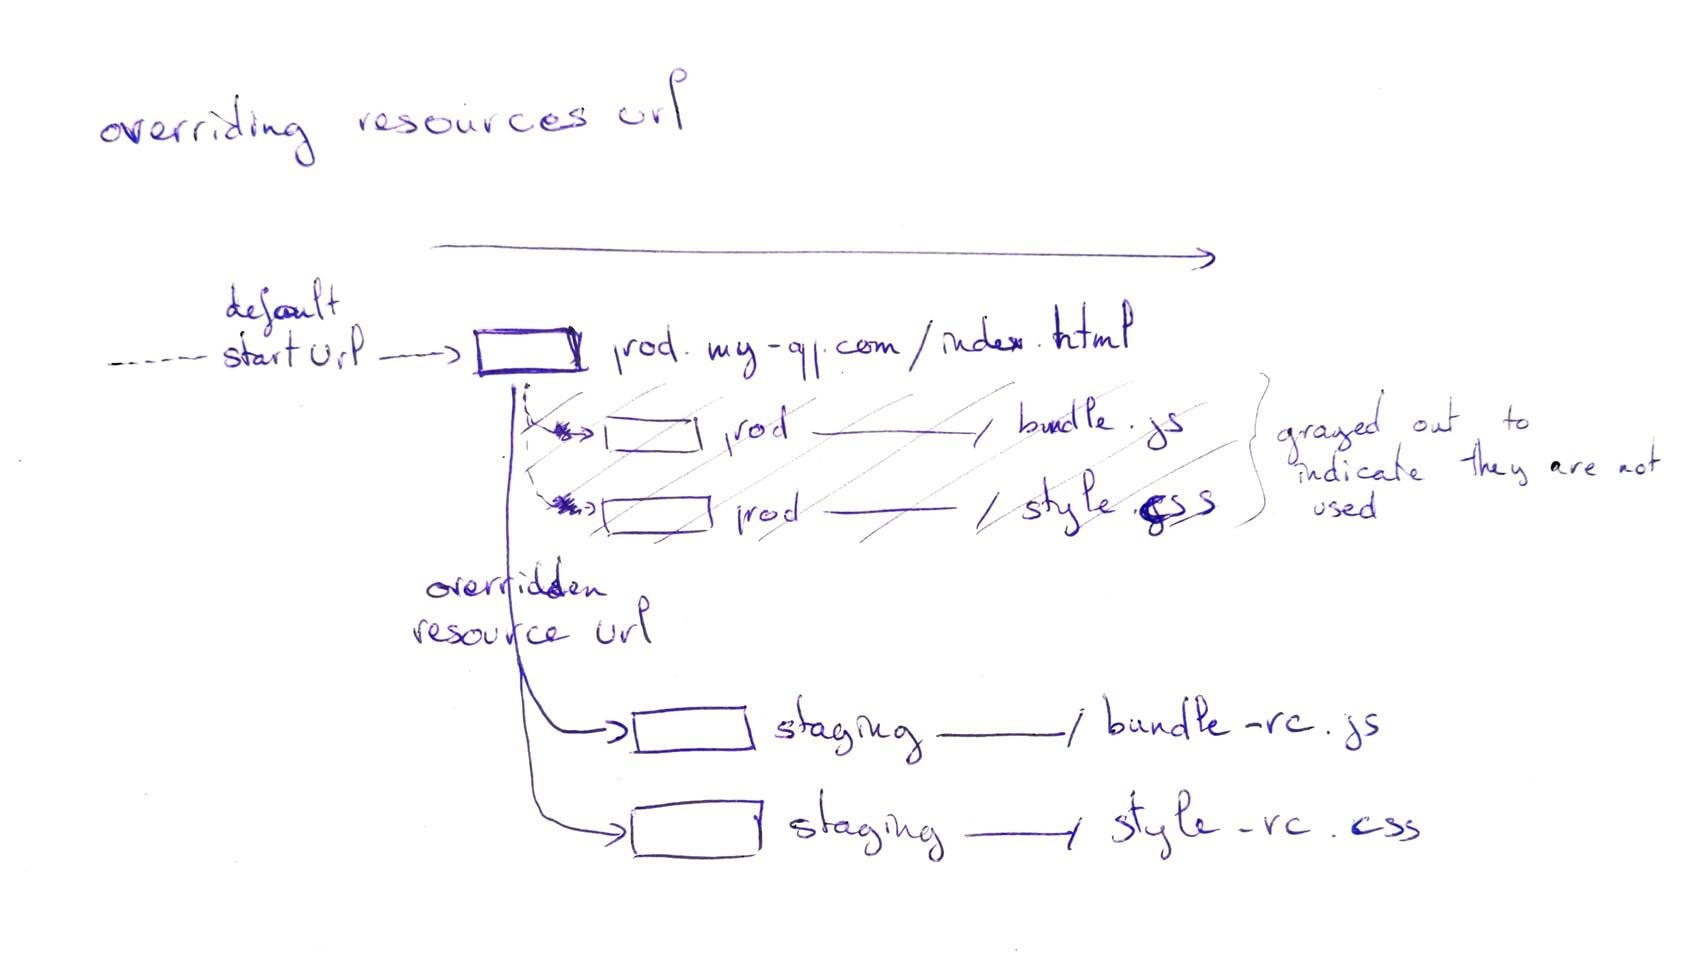 overriding resources url
default
start url
prod.my-app.com/index.html
prod / bundle.js
prod / style.css
grayed out to
indicate they are not
used
overridden
resource url
staging / bundle-rc.js
staging / style-rc.css